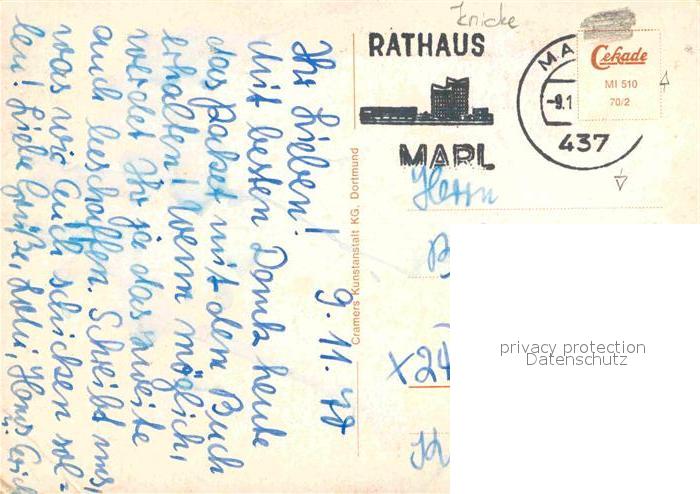 Knicke
RATHAUS
MARL
MA
-9.1
437
Cekade
MI 510
70/2
Cramers Kunstanstalt KG, Dortmund
9. 11. 70
Ihr Lieben!
Mit besten Dank heute
das Paket mit dem Buch
erhalten! Wenn möglich,
werdet Ihr ja das zweite
auch beschaffen. Schreibt uns,
was wir Euch schicken sol-
len! Liebe Grüße, Hans
Herrn
B
X24
privacy protection
Datenschutz